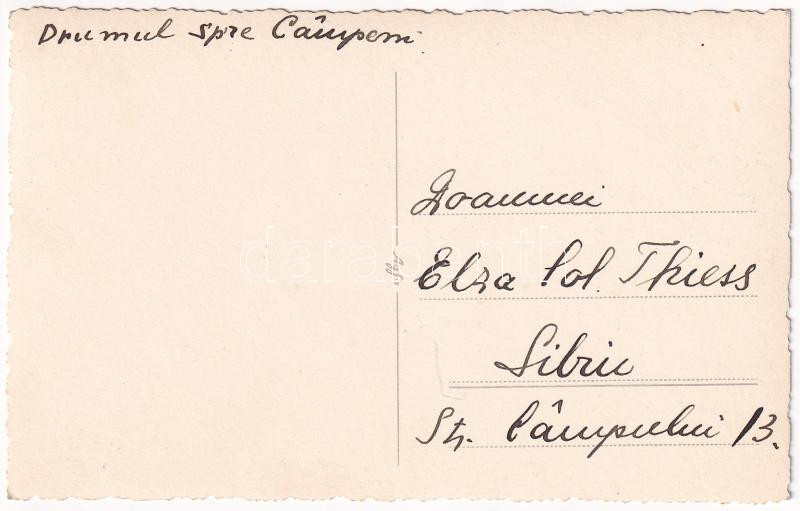 Drumul spre Câmpeni
Doamnei
Elza Col. Thiess
Sibiu
Str. Câmpului 13.
Agfa